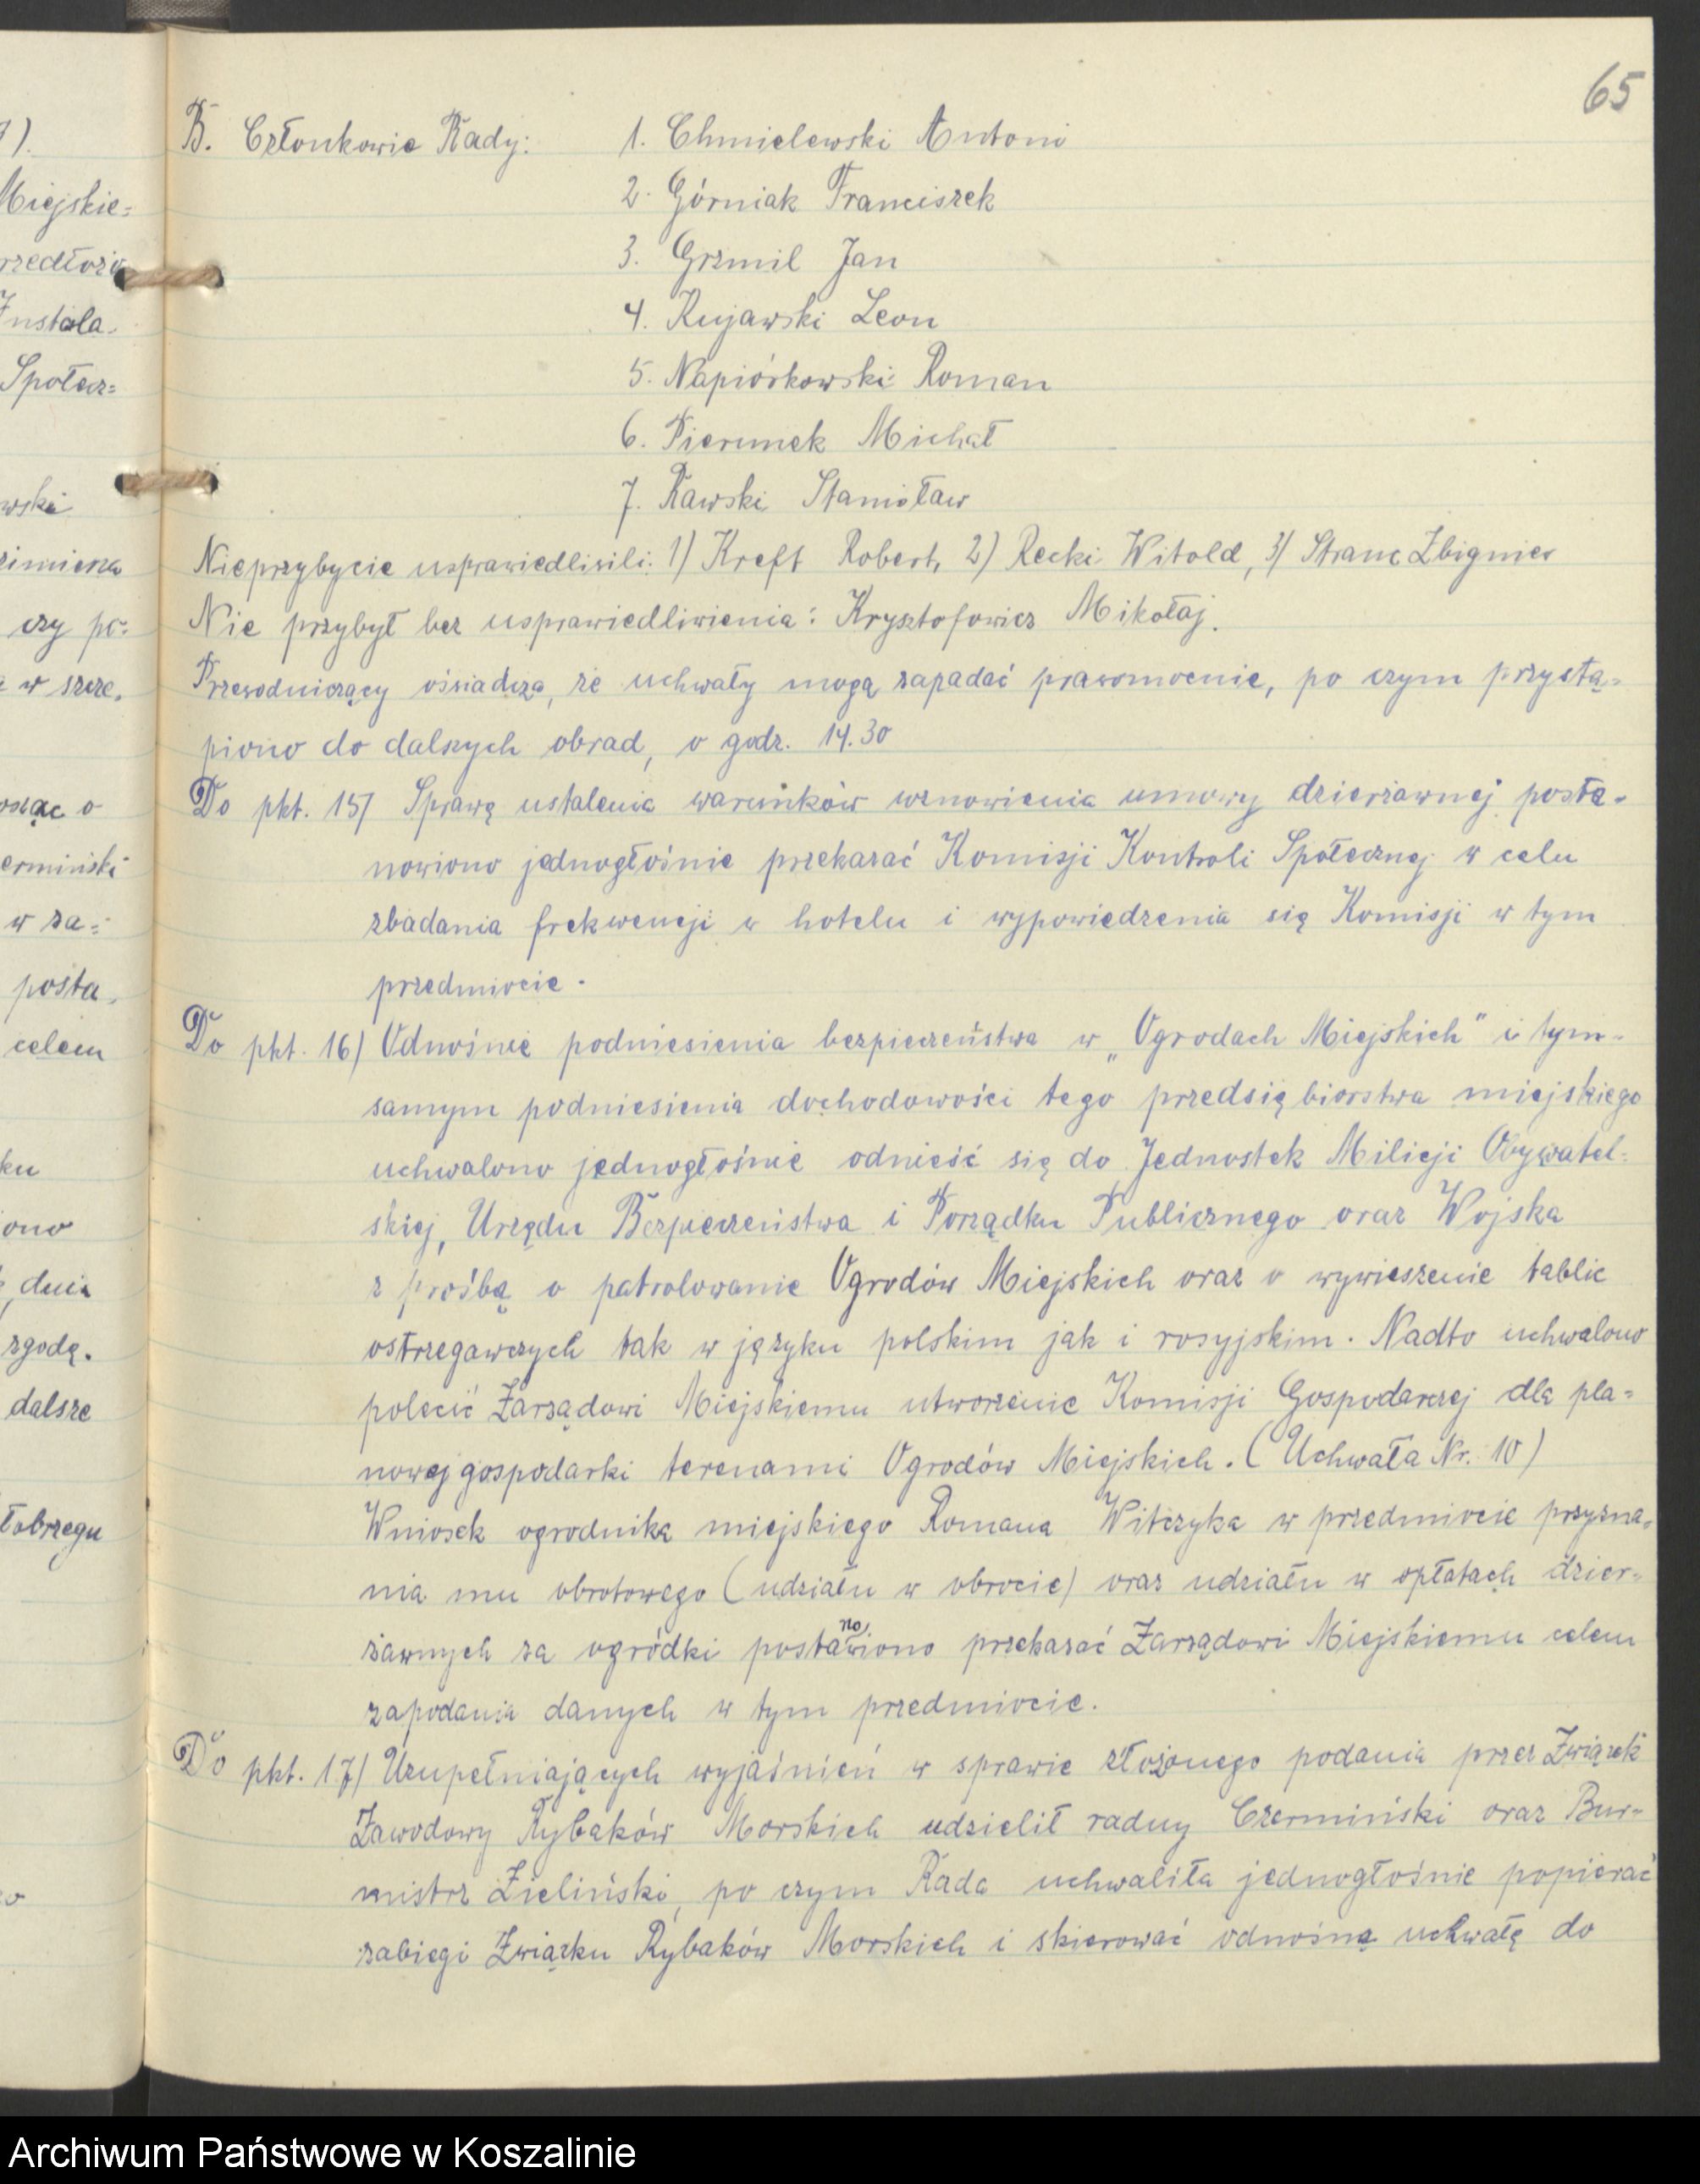 65
B. Członkowie Rady: 1. Chmielewski Antoni
2. Górniak Franciszek
3. Grzmil Jan
4. Kujawski Leon
5. Napiórkowski Roman
6. Pierunek Michał
7. Rawski Stanisław
Nieprzybycie usprawiedliwili: 1) Kreft Robert, 2) Recki Witold, 3) Stranc Zbigniew
Nie przybył bez usprawiedliwienia: Krysztofowicz Mikołaj.
Przewodniczący oświadcza, że uchwały mogą zapadać prawomocnie, po czym przystą=
piono do dalszych obrad, o godz. 14.30
Do pkt. 15/ Sprawę ustalenia warunków wznowienia umowy dzierżawnej posta=
nowiono jednogłośnie przekazać Komisji Kontroli Społecznej w celu
zbadania frekwencji w hotelu i wypowiedzenia się Komisji w tym
przedmiocie.
Do pkt. 16) Odnośnie podniesienia bezpieczeństwa w „Ogrodach Miejskich" i tym=
samym podniesienia dochodowości tego przedsiębiorstwa miejskiego
uchwalono jednogłośnie odnieść się do Jednostek Milicji Obywatel=
skiej, Urzędu Bezpieczeństwa i Porządku Publicznego oraz Wojska
z prośbą o patrolowanie Ogrodów Miejskich oraz o wywieszenie tablic
ostrzegawczych tak w języku polskim jak i rosyjskim. Nadto uchwalono
polecić Zarządowi Miejskiemu utworzenie Komisji Gospodarczej dla pla=
nowej gospodarki terenami Ogrodów Miejskich. (Uchwała Nr. 10)
Wniosek ogrodnika miejskiego Romana Witczyka w przedmiocie przyzna=
nia mu obrotowego (udziału w obrocie) oraz udziału w opłatach dzier=
żawnych za ogródki postanowiono przekazać Zarządowi Miejskiemu celem
zapodania danych w tym przedmiocie.
Do pkt. 17) Uzupełniających wyjaśnień w sprawie złożonego podania przez Związek
Zawodowy Rybaków Morskich udzielił radny Czermiński oraz Bur=
mistrz Zieliński, po czym Rada uchwaliła jednogłośnie popierać
zabiegi Związku Rybaków Morskich i skierować odnośną uchwałę do
7).
Miejskie=
Instala=
Społecz=
wski
czy po=
w szcze=
o
w za=
posta=
celem
ono
dnia
zgodę.
dalsze
Archiwum Państwowe w Koszalinie